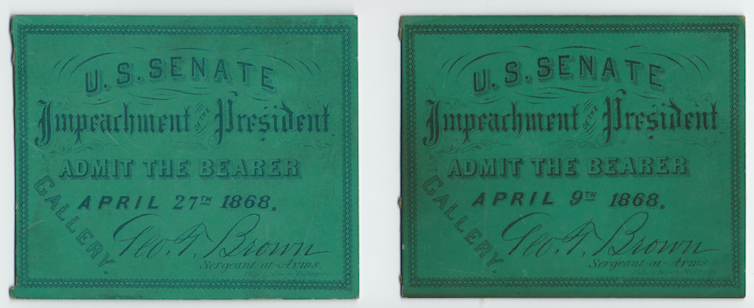 U.S. SENATE
Impeachment OF THE President
ADMIT THE BEARER
APRIL 27TH 1868.
GALLERY.
Geo. T. Brown
Sergeant-at-Arms.
U.S. SENATE
Impeachment OF THE President
ADMIT THE BEARER
APRIL 9TH 1868.
GALLERY.
Geo. T. Brown
Sergeant-at-Arms.